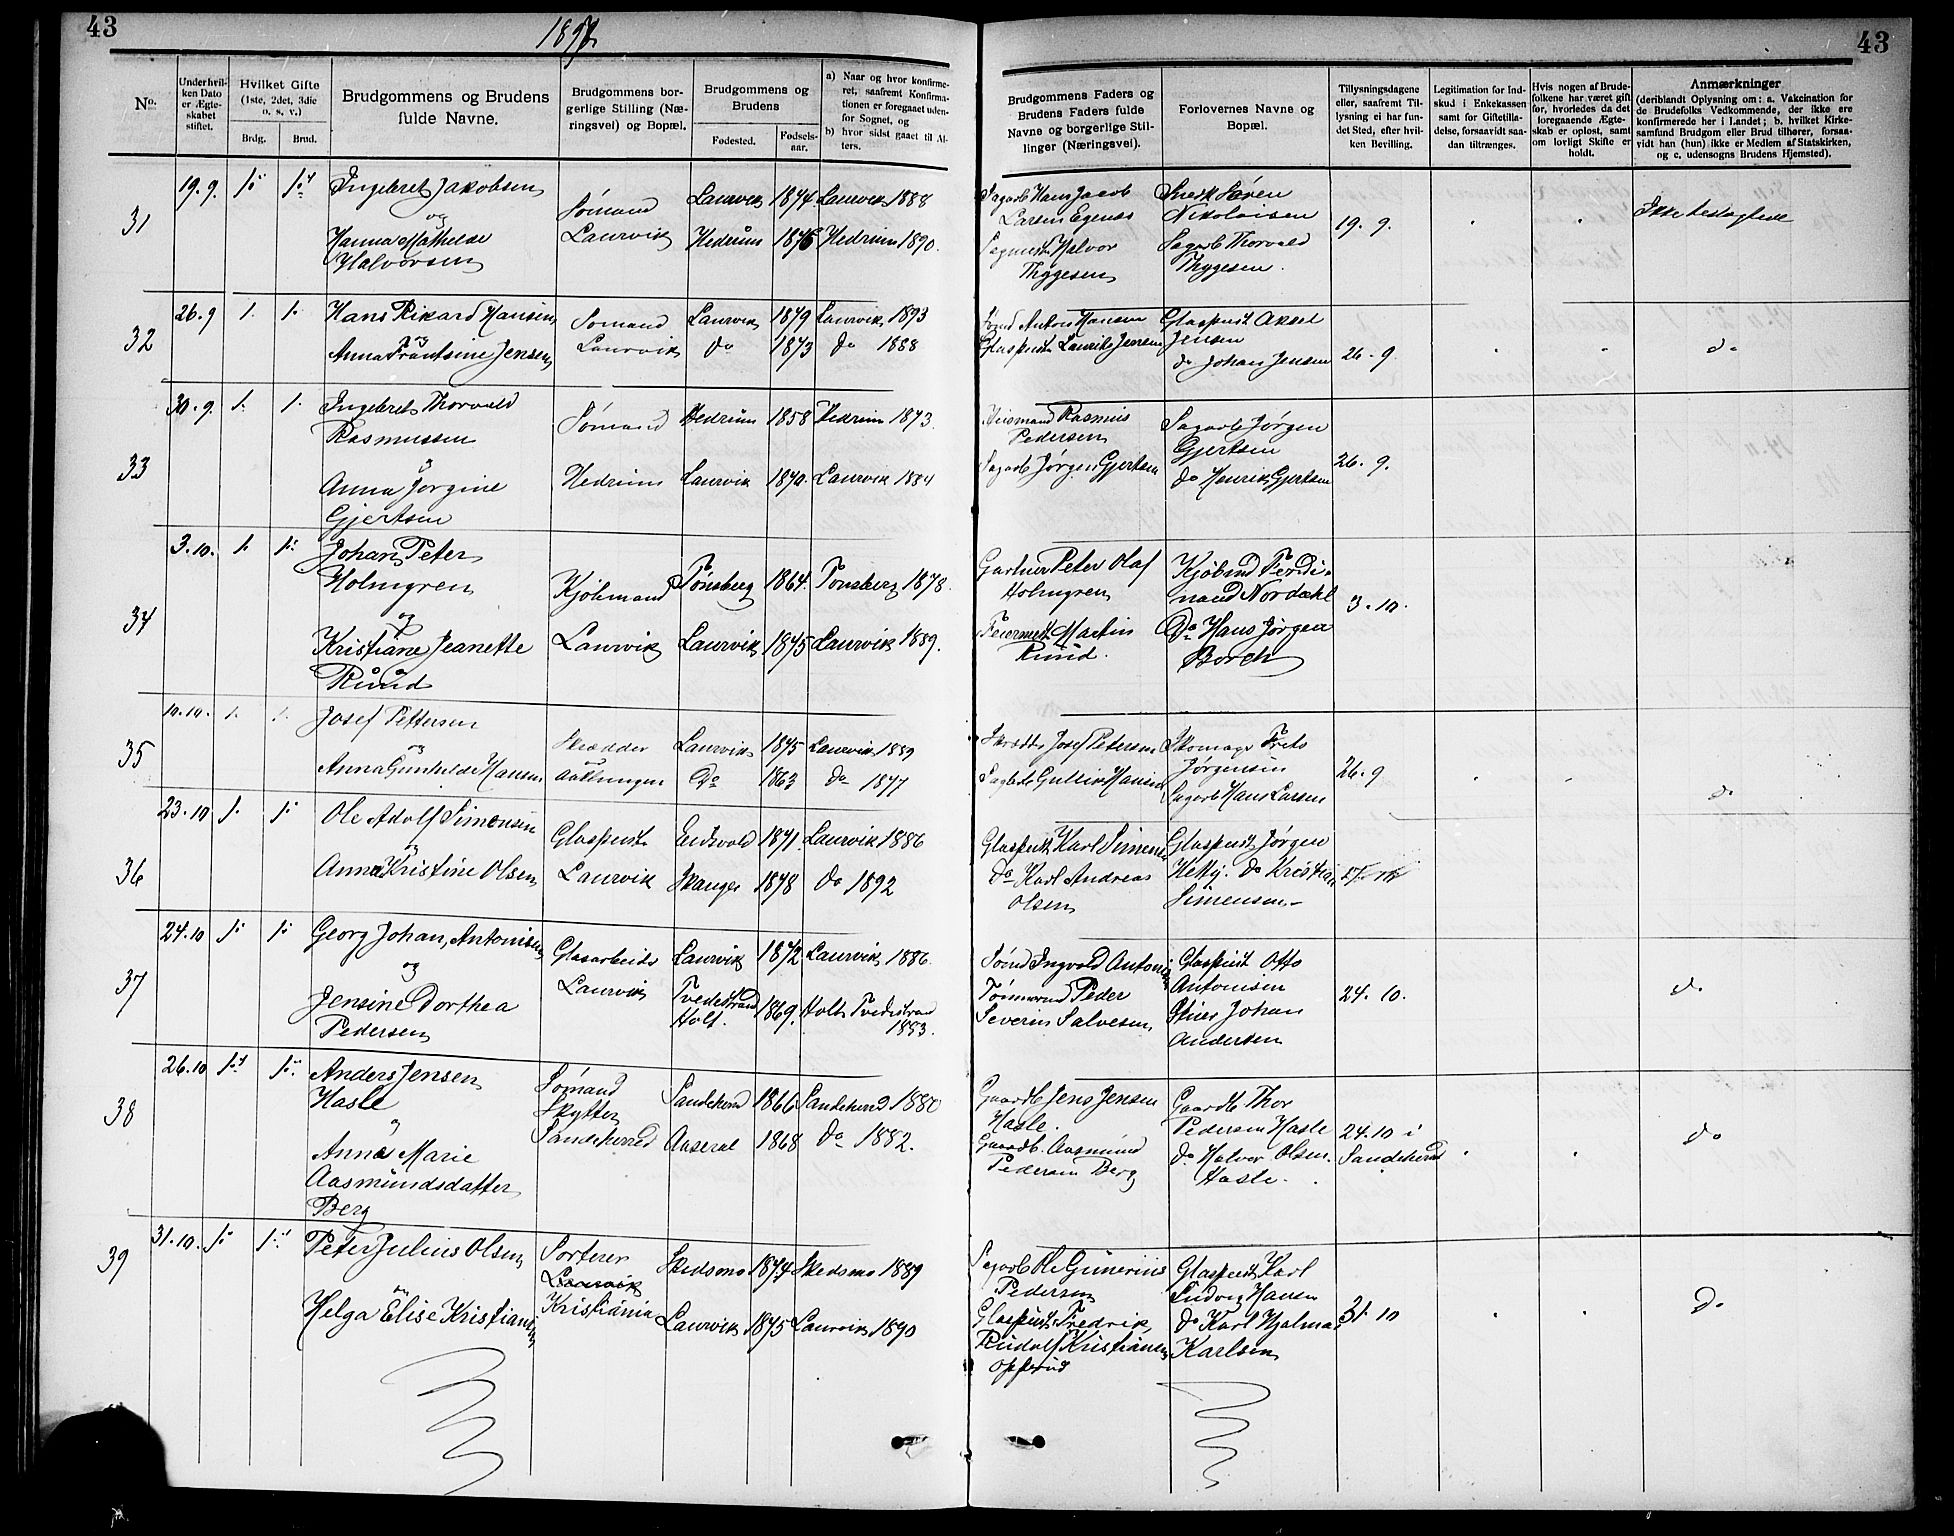 43
1897
43
No.
Underhvil-
ken Dato
er Ægte-
skabet
stiftet.
Hvilket Gifte
(1ste, 2det, 3die
o. s. v.)
Brdg.
Brud.
Brudgommens og Brudens
fulde Navne.
Brudgommens bor-
gerlige Stilling (Næ-
ringsvei) og Bopæl.
Brudgommens og
Brudens
Fødested.
Fødsels-
aar.
a) Naar og hvor konfirme-
ret, saafremt Konfirma-
tionen er foregaaet uden-
for Sognet, og
b) hvor sidst gaaet til Al-
ters.
Brudgommens Faders og
Brudens Faders fulde
Navne og borgerlige Stil-
linger (Næringsvei).
Forlovernes Navne og
Bopæl.
Tillysningsdagene
eller, saafremt Til-
lysning ei har fun-
det Sted, efter hvil-
ken Bevilling.
Legitimation for Ind-
skud i Enkekassen
samt for Giftetilla-
delse, forsaavidt saa-
dan tiltrænges.
Hvis nogen af Brude-
folkene har været gift
før, hvorledes da det
foregaaende Ægte-
skab er opløst, samt
om lovligt Skifte er
holdt.
Anmærkninger
(deriblandt Oplysning om: a. Vakcination for
de Brudefolks Vedkommende, der ikke ere
konfirmerede her i Landet; b. hvilket Kirke-
samfund Brudgom eller Brud tilhører, forsaa-
vidt han (hun) ikke er Medlem af Statskirken,
og c. udensogns Brudens Hjemsted).
31
19.9.
1ste
1ste
Ingebret Jakobsen
og
Hanna Mathilde
Halvorsen
Sømand
Laurvik
Laurvik 1874. Laurvik 1888
Hedrum 1876 Hedrum 1890.
Sagarb Hans Jacob
Larsen Egenæs
Sagmest Halvor
Thygesen
Snedk Søren
Nikolaisen
Sagarb Thorvald
Thygesen.
19. 9.
Ikke beslægtede
32
26.9
1.
1.
Hans Rikard Hansen
og
Anna Frantsine Jensen
Sømand
Laurvik
Laurvik 1879 Laurvik 1893
do 1873 do 1888
Sømd Anton Hansen
Glaspust Laurits Jensen
Glaspust Aksel
Jensen
do Johan Jensen
26. 9
do
33
30.9.
1.
1.
Ingebret Thorvald
Rasmussen
og
Anna Jørgine
Gjertsen
Sømand
Hedrum
Hedrum 1858 Hedrum 1873.
Laurvik 1870. Laurvik 1884
Huusmand Rasmus
Pedersen
Sagarb Jørgen Gjertsen
Sagarb Jørgen
Gjertsen
do Henrik Gjertsen
26. 9.
34
3.10.
1.
1ste
Johan Peter
Holmgren
og
Kristiane Jeanette
Ruud
Kjøbmand
Laurvik
Tønsberg 1864. Tønsberg 1878.
Laurvik 1875 Laurvik 1889.
Gartner Peter Olaf
Holmgren
Feiermest Martin
Ruud.
Kjøbmd Ferdi-
nand Nordahl
Do Hans Jørgen
Borch
3. 10.
35
10.10.
1.
1.
Josef Pettersen
og
Anna Gunhilde Hansen
Skrædder
Laurvik 1875 Laurvik 1889
Do 1863 do 1877
Skrædder Josef Petersen
Sagarb Gullik Hansen
Skomager Frits
Jørgensen
Sagarb Hans Larsen
26. 9
do
36
23.10
1.
1.
Ole Adolf Simensen
og
Anna Kristine Olsen
Glaspust
Laurvik
Eidsvold 1871. Laurvik 1886
Skauger 1878 do 1892
Glaspust Karl Simensen
do Karl Andreas
Olsen
Glaspust Jørgen
Hetty. do Kristian
Simensen
37
24.10
1.
1.
Georg Johan Antonisen
og
Jensine Dorthea
Pedersen
Glasarbeid
Laurvik
Laurvik 1872. Laurvik 1886.
Tvedestrand
Holt. 1869. Holt Tvedestrand
1883.
Sømd Ingvald Antonisen
Tømmermd Peder
Severin Salvesen
Glaspust Otto
Antonisen
Johan
Andersen
24. 10.
do
38
26.10
1ste
1ste
Anders Jensen
Hasle
og
Anna Marie
Aasmundsdatter
Berg
Sømand
Skytter
Sandeherred
Sandeherred 1866 Sandeherred 1880
Aaseral 1868 do 1882.
Gaardb Jens Jensen
Hasle.
Gaardb. Aasmund
Pedersen Berg
Gaardb Thor
Pedersen Hasle
do Halvor Olsen
Hasle.
24.10 i
Sandeherred
do
39
31.10.
1.
1ste
Peter Julius Olsen
og
Helga Elise Kristiansen
Sorterer
Laurvik
Kristiania
Skedsmo 1874 Skedsmo 1889
Laurvik 1875 Laurvik 1890
Sagarb Ole Gunerius
Pedersen
Glaspust Fredrik
Rudolf Kristiansen
Opperud
Glaspust Karl
Ludvig Hansen
do Karl Hjalmar
Karlsen
31. 10
do